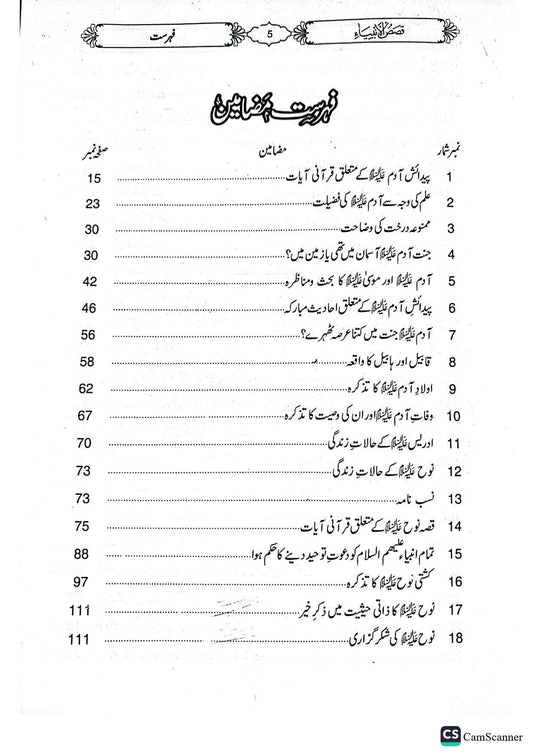 قصص الانبیاء
5
فہرست
فہرست مضامین
نمبر شمار مضامین صفحہ نمبر
1 پیدائش آدم علیہ السلام کے متعلق قرآنی آیات 15
2 علم کی وجہ سے آدم علیہ السلام کی فضیلت 23
3 ممنوعہ درخت کی وضاحت 30
4 جنت آدم علیہ السلام آسمان میں تھی یا زمین میں؟ 30
5 آدم علیہ السلام اور موسیٰ علیہ السلام کا بحث ومناظرہ 42
6 پیدائش آدم علیہ السلام کے متعلق احادیث مبارکہ 46
7 آدم علیہ السلام جنت میں کتنا عرصہ ٹھہرے؟ 56
8 قابیل اور ہابیل کا واقعہ 58
9 اولادِ آدم علیہ السلام کا تذکرہ 62
10 وفاتِ آدم علیہ السلام اور ان کی وصیت کا تذکرہ 67
11 ادریس علیہ السلام کے حالاتِ زندگی 70
12 نوح علیہ السلام کے حالاتِ زندگی 73
13 نسب نامہ 73
14 قصہ نوح علیہ السلام کے متعلق قرآنی آیات 75
15 تمام انبیاء علیھم السلام کو دعوتِ توحید دینے کا حکم ہوا 88
16 کشتی نوح علیہ السلام کا تذکرہ 97
17 نوح علیہ السلام کا ذاتی حیثیت میں ذکرِ خیر 111
18 نوح علیہ السلام کی شکر گزاری 111
CS CamScanner